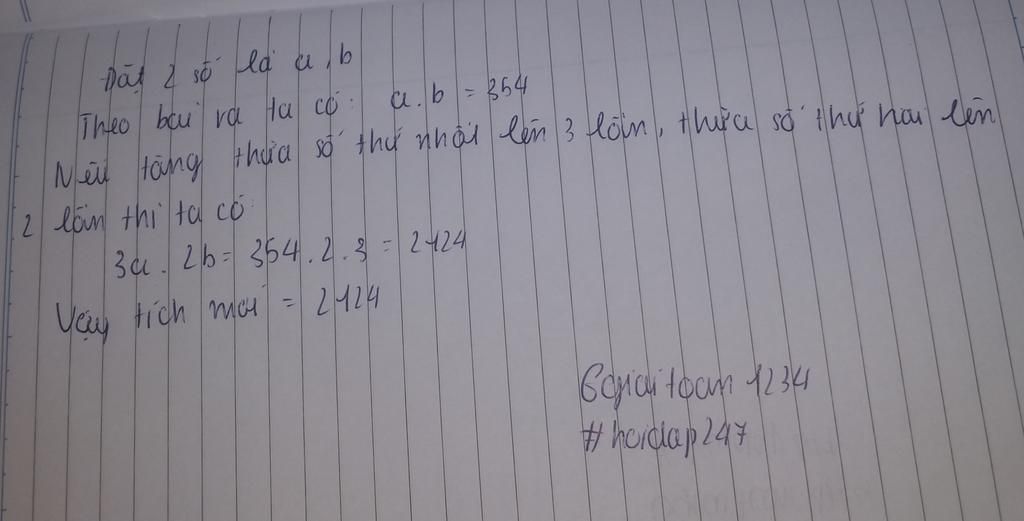 Đặt 2 số là a, b
Theo bài ra ta có: a.b = 354
Nếu tăng thừa số thứ nhất lên 3 lần, thừa số thứ hai lên
2 lần thì ta có:
3a . 2b = 354.2.3 = 2124
Vậy tích mới = 2124
6giaitoan1234
#hoidap247